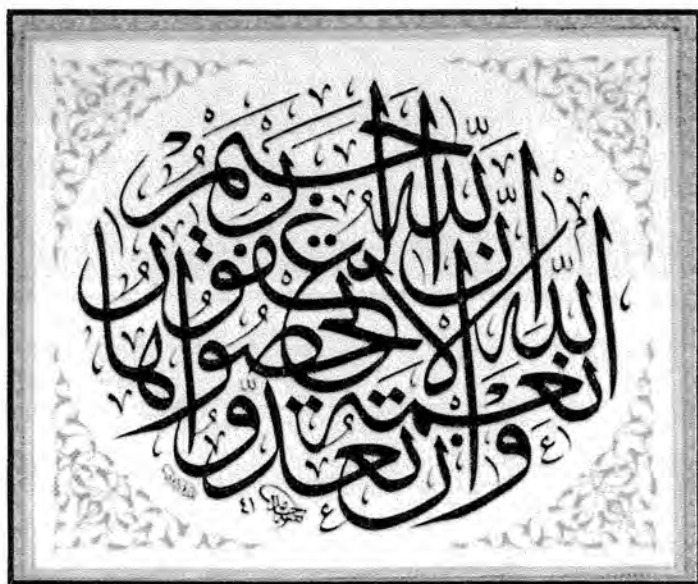 وَإِنْ تَعُدُّوا
نِعْمَةَ اللّٰهِ
لَا تُحْصُوهَا
إِنَّ اللّٰهَ لَغَفُورٌ
رَحِيمٌ